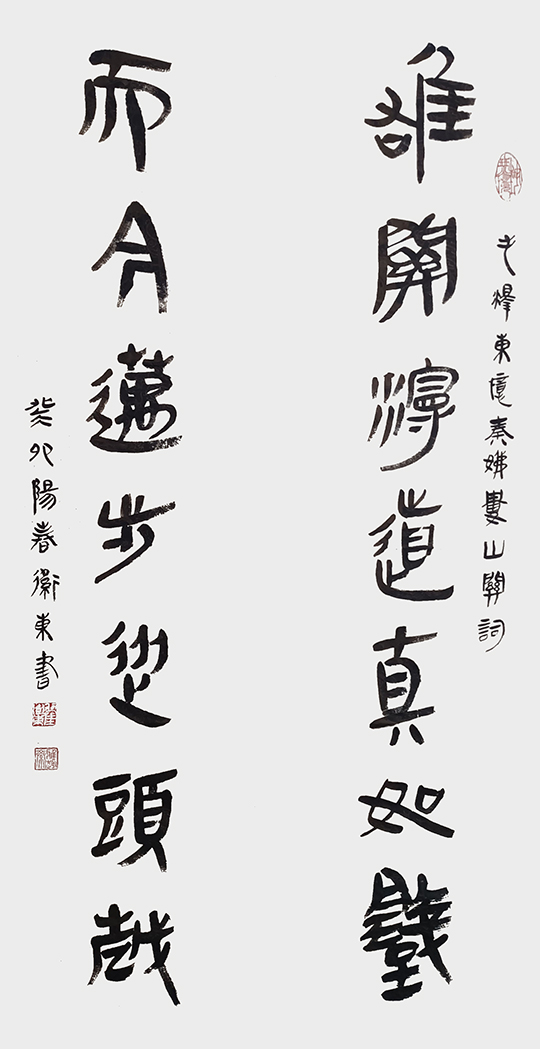 毛澤東憶秦娥婁山關詞
雄關漫道真如鐵
而今邁步從頭越
癸卯陽春衛東書